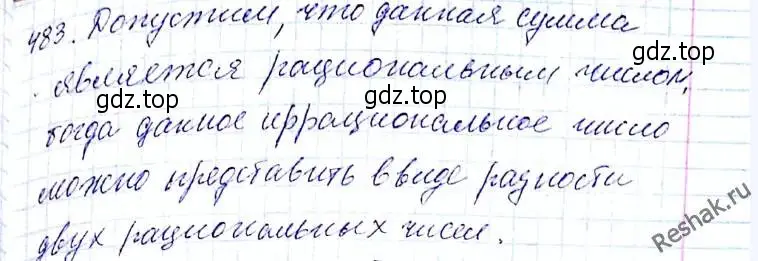 483. Допустим, что данная сумма
gdz.top gdz.top
является рациональным числом,
тогда данное иррациональное число
можно представить в виде разности
gdz.top gdz.top
двух рациональных чисел.
Reshak.ru